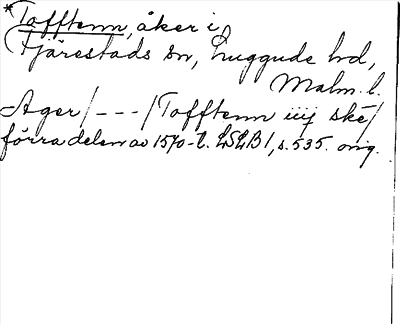 *Tofftenn, åker i
Fjärestads sn, Luggude hd,
Malm. l.
Ager / - - - / Tofftenn iiij ske /
förra delen av 1570-t. LSLB 1, s. 535. orig.